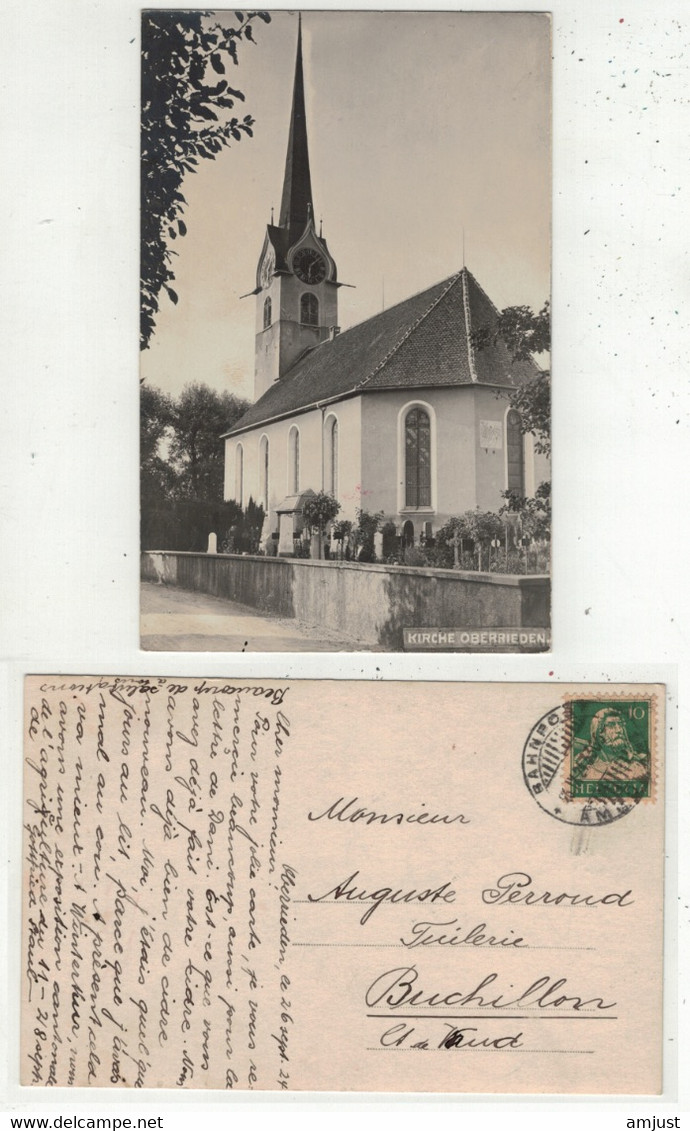 KIRCHE OBERRIEDEN
Oberrieden, le 26 sept. 24
Cher monsieur!
Pour votre jolie carte, je vous re-
mercie beaucoup, aussi pour la
lettre de Dani. Est-ce que vous
avez déjà fait votre cidre. Nous
avons déjà bien de cidre
nouveau. Moi, j'étais quelque
jours au lit, parce que j'avais
mal au cou. A présent cela
va mieux. A Winterthur, nous
avons une exposition cantonale
de l'agriculture du 11 - 28 sept.
Beaucoup de salutations
à tous
de Gottfried Staub
BAHNPOST
AMB
10
HELVETIA
Monsieur
Auguste Perroud
Tuilerie
Buchillon
Ct de Vaud
amjust
delcampe.net
amjust